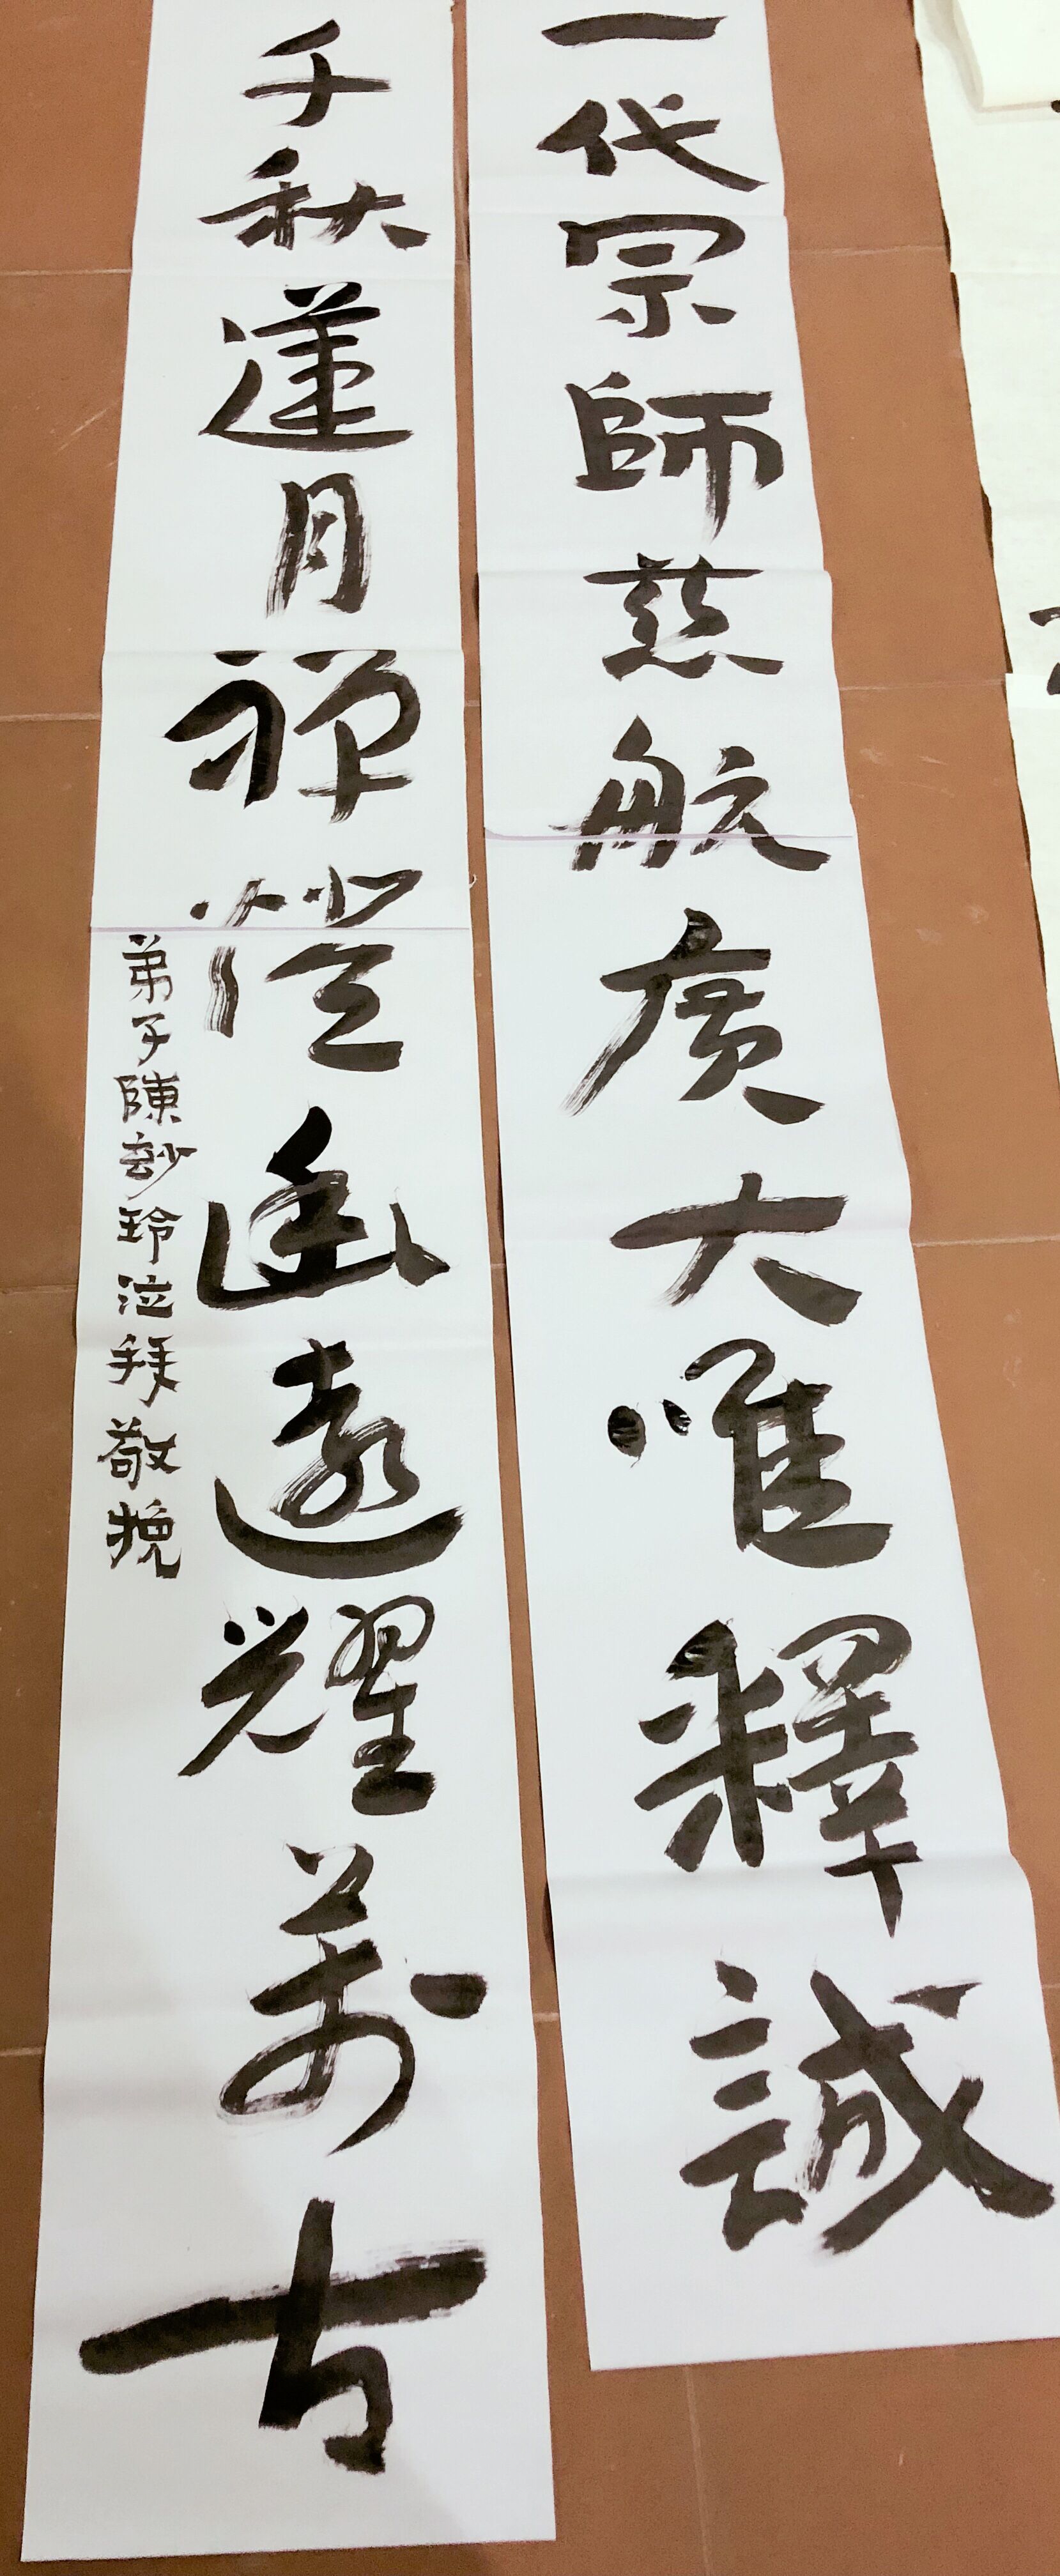 一代宗師慈航廣大唯釋誠
千秋蓮月禪燈幽遠耀萬古
弟子陳玅玲泣拜敬挽